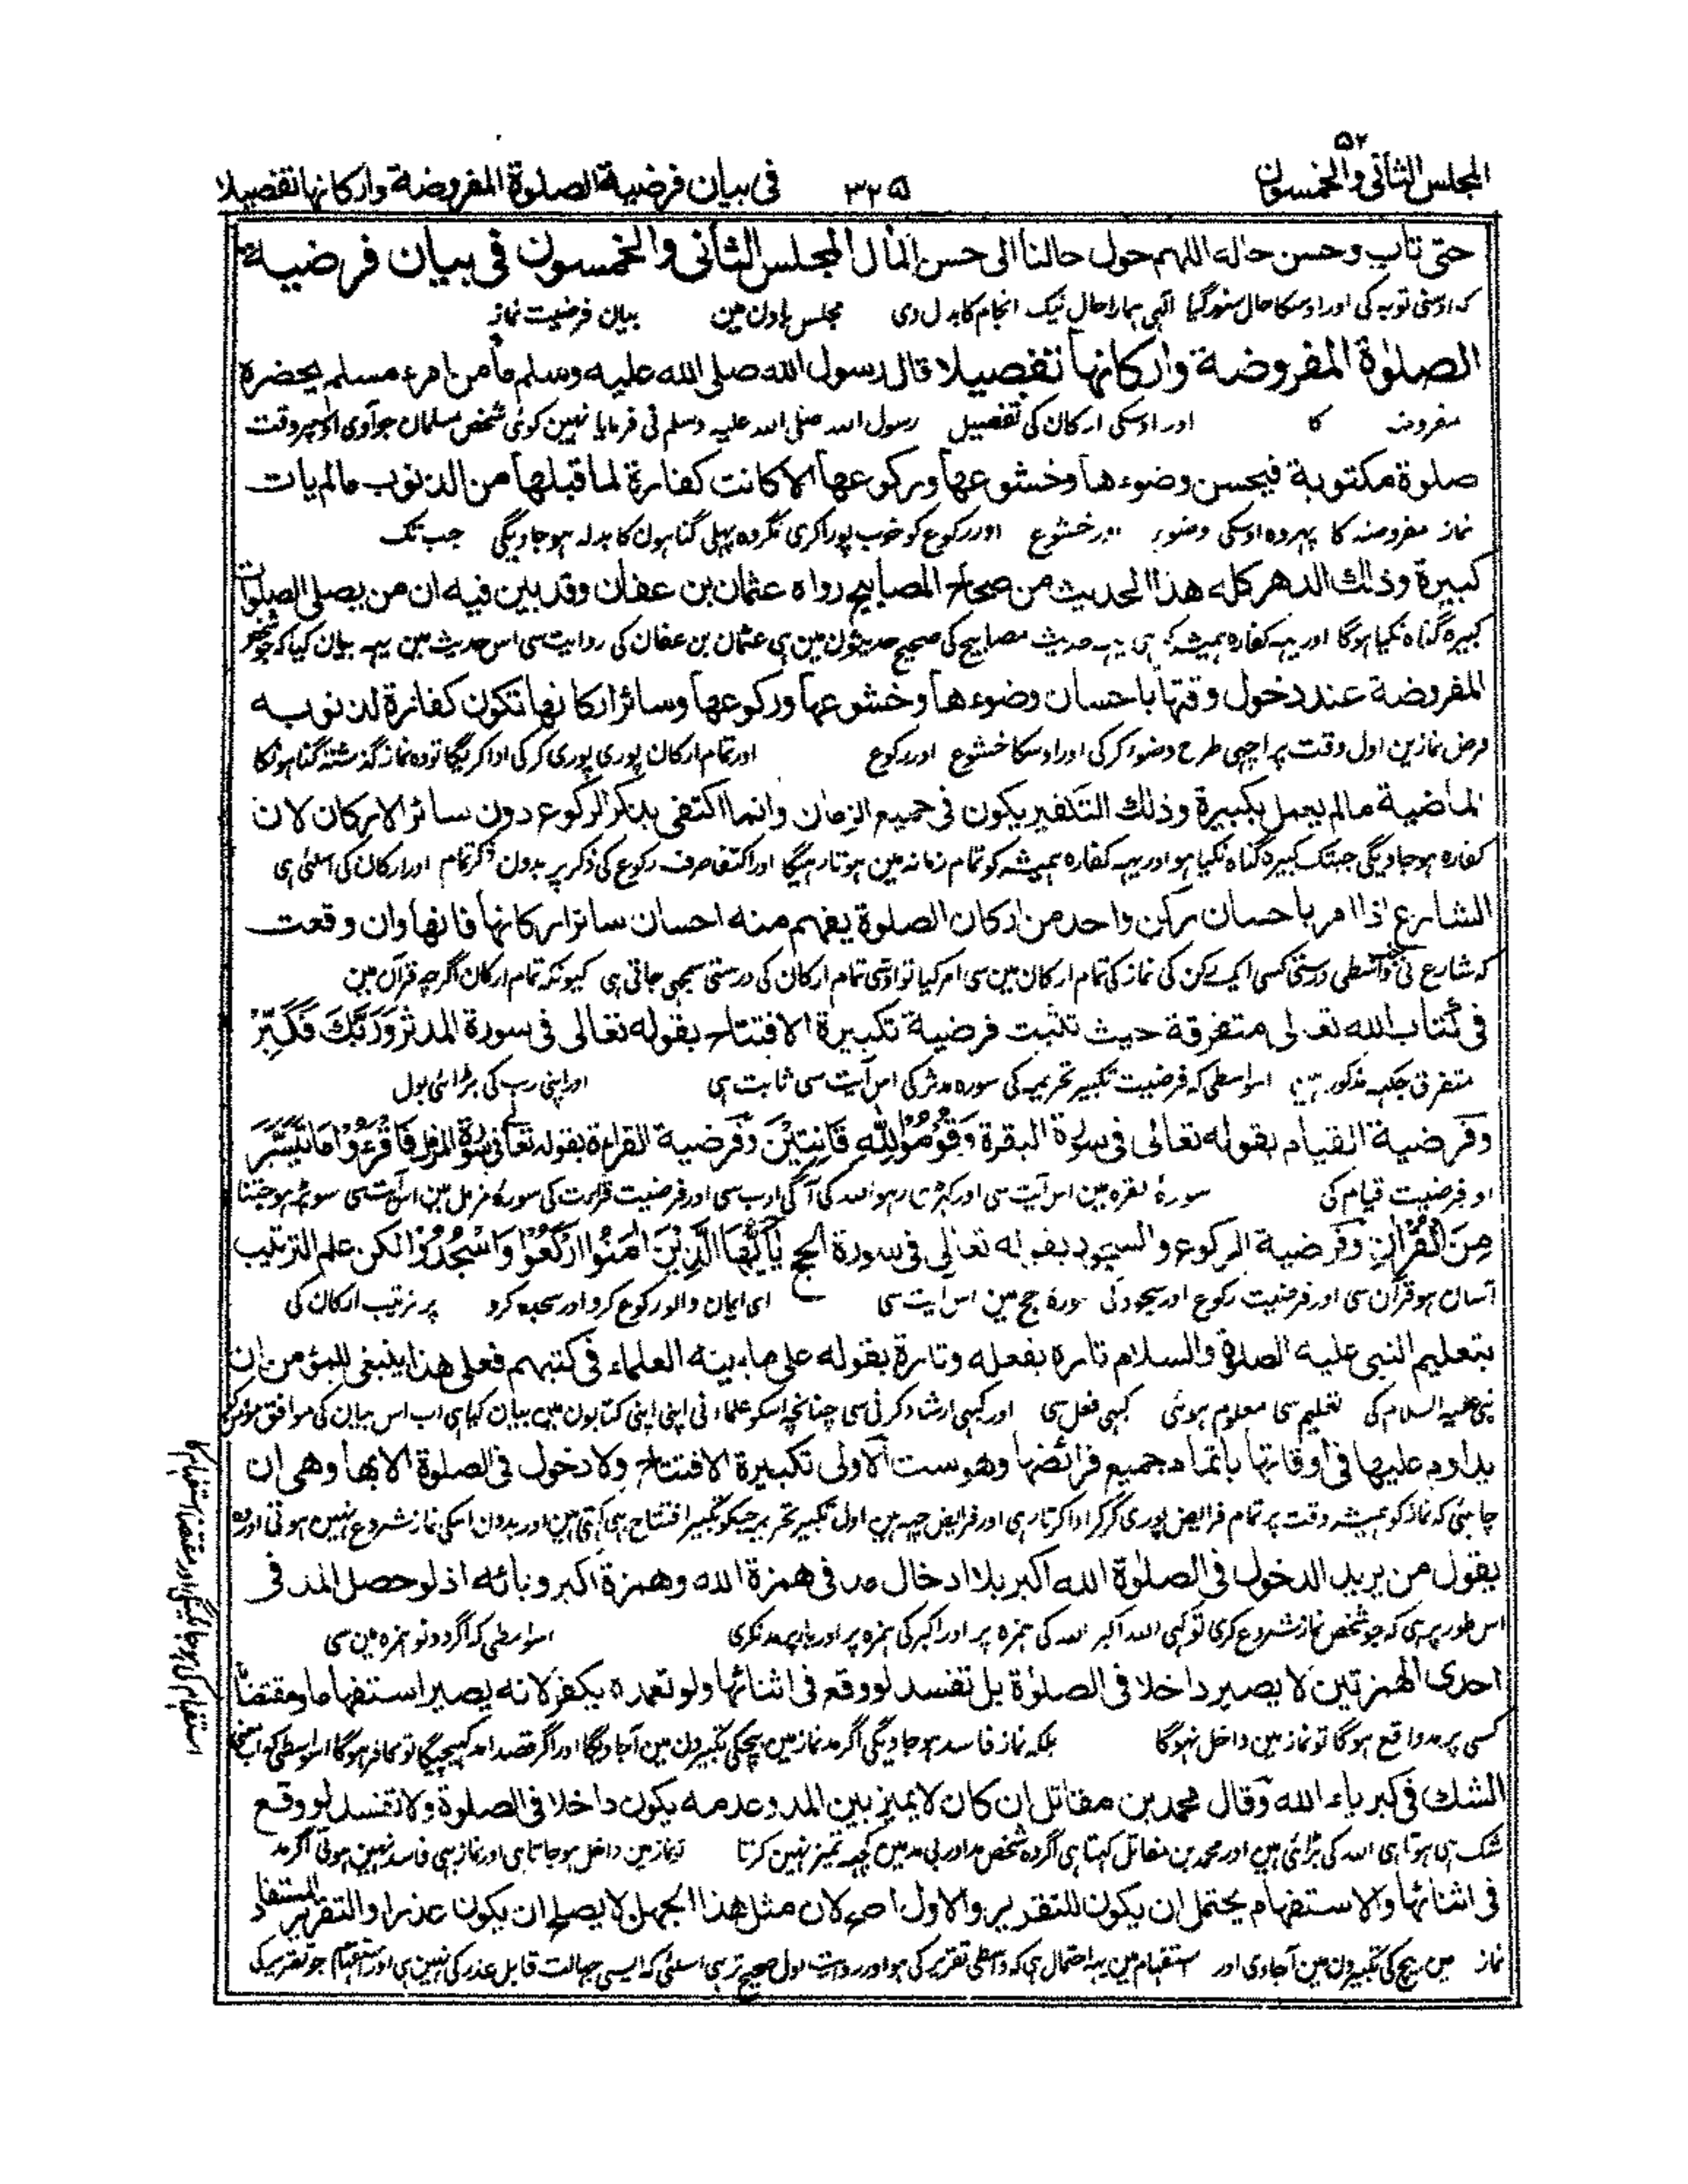 ٥٢
المجلس الثانی والخمسون ٣٢٥ فی بیان فرضیة الصلوة المفروضة وارکانها تفصیلا
حتی تاب وحسن حاله اللهم حول حالنا الی حسن المآل المجلس الثانی والخمسون فی بیان فرضیة
که اوسنی توبه کی اور اوسکا حال سنور گیا الہی ہمارا حال نیک انجام کا بدل دی مجلس باون مین بیان فرضیت نماز
الصلوٰة المفروضة وارکانها تفصیلا قال رسول الله صلی الله علیه وسلم ما من امرء مسلم یحضره
مفروضہ کا اور اوسکی ارکان کی تفصیل رسول اللہ صلی اللہ علیہ وسلم نی فرمایا نہین کوئی شخص مسلمان جو آوی اوسپر وقت
صلوة مکتوبة فیحسن وضوءها وخشوعها ورکوعها الا کانت کفارة لما قبلها من الذنوب مالم یات
نماز مفروضہ کا پہر وہ اوسکی وضوء اور خشوع اور رکوع کو خوب پورا کری مگر وہ پہلی گناہون کا بدلہ ہو جاویگی جب تک
کبیرة وذلك الدهر کله هذا الحدیث من صحاح المصابیح رواه عثمان بن عفان وقد بین فیه ان من یصلی الصلوات
کبیرہ گناہ نکیا ہوگا اور یہہ کفارہ ہمیشہ کو ہی یہہ حدیث مصابیح کی صحیح حدیثون مین ہی عثمان بن عفان کی روایت سی اس حدیث مین یہہ بیان کیا کہ جو شخص
المفروضة عند دخول وقتها باحسان وضوءها وخشوعها ورکوعها وسائر ارکانها تکون کفارة لذنوبه
فرض نمازین اول وقت پر اچہی طرح وضوء کرکی اور اوسکا خشوع اور رکوع اور تمام ارکان پوری پوری کرکی ادا کریگا تو وہ نماز گذشتہ گناہونکا
الماضیة مالم یعمل بکبیرة وذلك التکفیر یکون فی جمیع الزمان وانما اکتفی بذکر الرکوع دون سائر الارکان لان
کفارہ ہو جاویگی جبتک کبیرہ گناہ نکیا ہو اور یہہ کفارہ ہمیشہ کو تمام زمانہ مین ہوتا رہیگا اور اکتفا صرف رکوع کی ذکر پر بدون ذکر تمام اور ارکان کی اسلئی ہی
الشارع اذا امر باحسان رکن واحد من ارکان الصلوة یفهم منه احسان سائر ارکانها فانها وان وقعت
کہ شارع نی جو واسطی درستی کسی ایک رکن کی نماز کی تمام ارکان مین سی امر کیا تو اوسی تمام ارکان کی درستی سمجہی جاتی ہی کیونکہ تمام ارکان اگرچہ قرآن مین
فی کتاب الله تعالی متفرقة حیث تثبت فرضیة تکبیرة الافتتاح بقوله تعالی فی سورة المدثر وَرَبَّكَ فَکَبِّرْ
متفرق جگہہ مذکور ہین اسواسطی کہ فرضیت تکبیر تحریمہ کی سورہ مدثر کی اس آیت سی ثابت ہی اور اپنی رب کی بڑائی بول
وفرضیة القیام بقوله تعالی فی سورة البقرة وَقُوْمُوْا لِلّٰهِ قَانِتِیْنَ وفرضیة القراءة بقوله تعالی فی سورة المزمل فَاقْرَءُوْا مَا تَیَسَّرَ
اور فرضیت قیام کی سورۂ بقرہ مین اس آیت سی اور کہڑی رہو اللہ کی آگی ادب سی اور فرضیت قراءت کی سورۂ مزمل مین اس آیت سی سو پڑہو جتنا
مِنَ الْقُرْاٰنِ وفرضیة الرکوع والسجود بقوله تعالی فی سورة الحج یٰاَیُّهَا الَّذِیْنَ اٰمَنُوا ارْکَعُوْا وَاسْجُدُوْا لکن علم الترتیب
آسان ہو قرآن سی اور فرضیت رکوع اور سجود کی سورۂ حج مین اس آیت سی ای ایمان والو رکوع کرو اور سجدہ کرو پر ترتیب ارکان کی
بتعلیم النبی علیه الصلوة والسلام تارة بفعله وتارة بقوله علی ما بینه العلماء فی کتبهم فعلی هذا ینبغی للمؤمن ان
نبی علیہ السلام کی تعلیم سی معلوم ہوئی کبہی فعل سی اور کبہی ارشاد کرنی سی چنانچہ اسکو علماء نی اپنی اپنی کتابون مین بیان کیا ہی اب اس بیان کی موافق مؤمن کو
یداوم علیها فی اوقاتها باتمام جمیع فرائضها وهو ست الاولی تکبیرة الافتتاح ولا دخول فی الصلوة الا بها وهی ان
چاہئی کہ نماز کو ہمیشہ وقت پر تمام فرایض پوری کرکر ادا کرتا رہی اور فرایض چہہ ہین اول تکبیر تحریمہ جسکو تکبیر افتتاح بہی کہتی ہین اور بدون اسکی نماز شروع نہین ہوتی اور وہ
یقول من یرید الدخول فی الصلوٰة الله اکبر بلا ادخال مد فی همزة الله وهمزة اکبر وبائه اذ لو حصل المد فی
اس طور پر ہی کہ جو شخص نماز شروع کری تو کہی اللہ اکبر اللہ کی ہمزہ پر اور اکبر کی ہمزہ پر اور با پر مد نکری اسواسطی کہ اگر دونو ہمزہ مین سی
احدی الهمزتین لا یصیر داخلا فی الصلوٰة بل تفسد لو وقع فی اثنائها ولو تعمده یکفر لانه یصیر استفهاما ومقتضاه
کسی پر مد واقع ہوگا تو نماز مین داخل نہوگا بلکہ نماز فاسد ہو جاویگی اگر مد نماز مین بیچکی تکبیرون مین آجاویگا اور اگر قصدا مد کہینچیگا تو کافر ہوگا اسواسطی کہ اب
الشك فی کبریاء الله وقال محمد بن مقاتل ان کان لا یمیز بین المد وعدمه یکون داخلا فی الصلوة ولا تفسد لو وقع
شک ہی ہوتا ہی اللہ کی بڑائی مین اور محمد بن مقاتل کہتا ہی اگر وہ شخص مد اور بی مد مین کچہہ تمیز نہین کرتا تو نماز مین داخل ہو جاتا ہی اور نماز بہی فاسد نہین ہوتی اگر مد
فی اثنائها والاستفهام یحتمل ان یکون للتقریر والاول اصح لان مثل هذا الجهل لا یصلح ان یکون عذرا والتقریر المستفاد
نماز مین بیچ کی تکبیرون مین آجاوی اور استفہام مین یہہ احتمال ہی کہ واسطی تقریر کی ہو اور روایت اول صحیح تر ہی اسلئی کہ ایسی جہالت قابل عذر کی نہین ہی اور استفہام جو تقریر کی
استفہام کی ہو جاویگی اور مقتضا استفہام کا